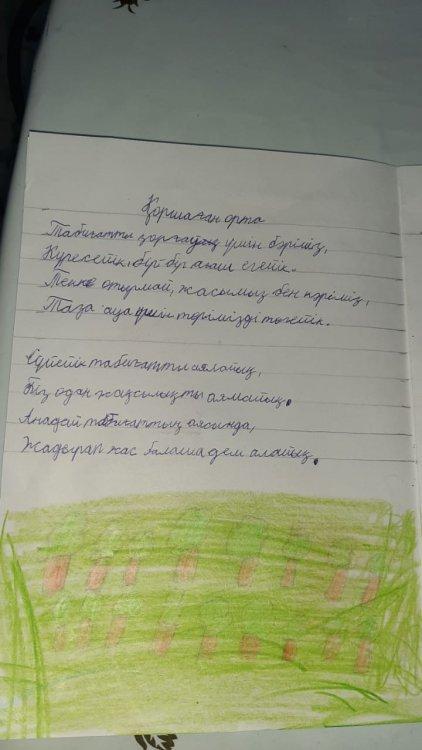 Қоршаған орта
Табиғатты қорғаудың үшін бәріміз,
Күресетік, бүр бүр ағаш егетік.
Текке отырмай, жасымыз бен кәріміз,
Таза ауа үшін терімізді төгетік.
Сүйетік табиғатты аялатық,
Біз одан жақсылықты аяматық.
Анадай табиғаттың аясында,
Жадырап жас балаша дем алатық.